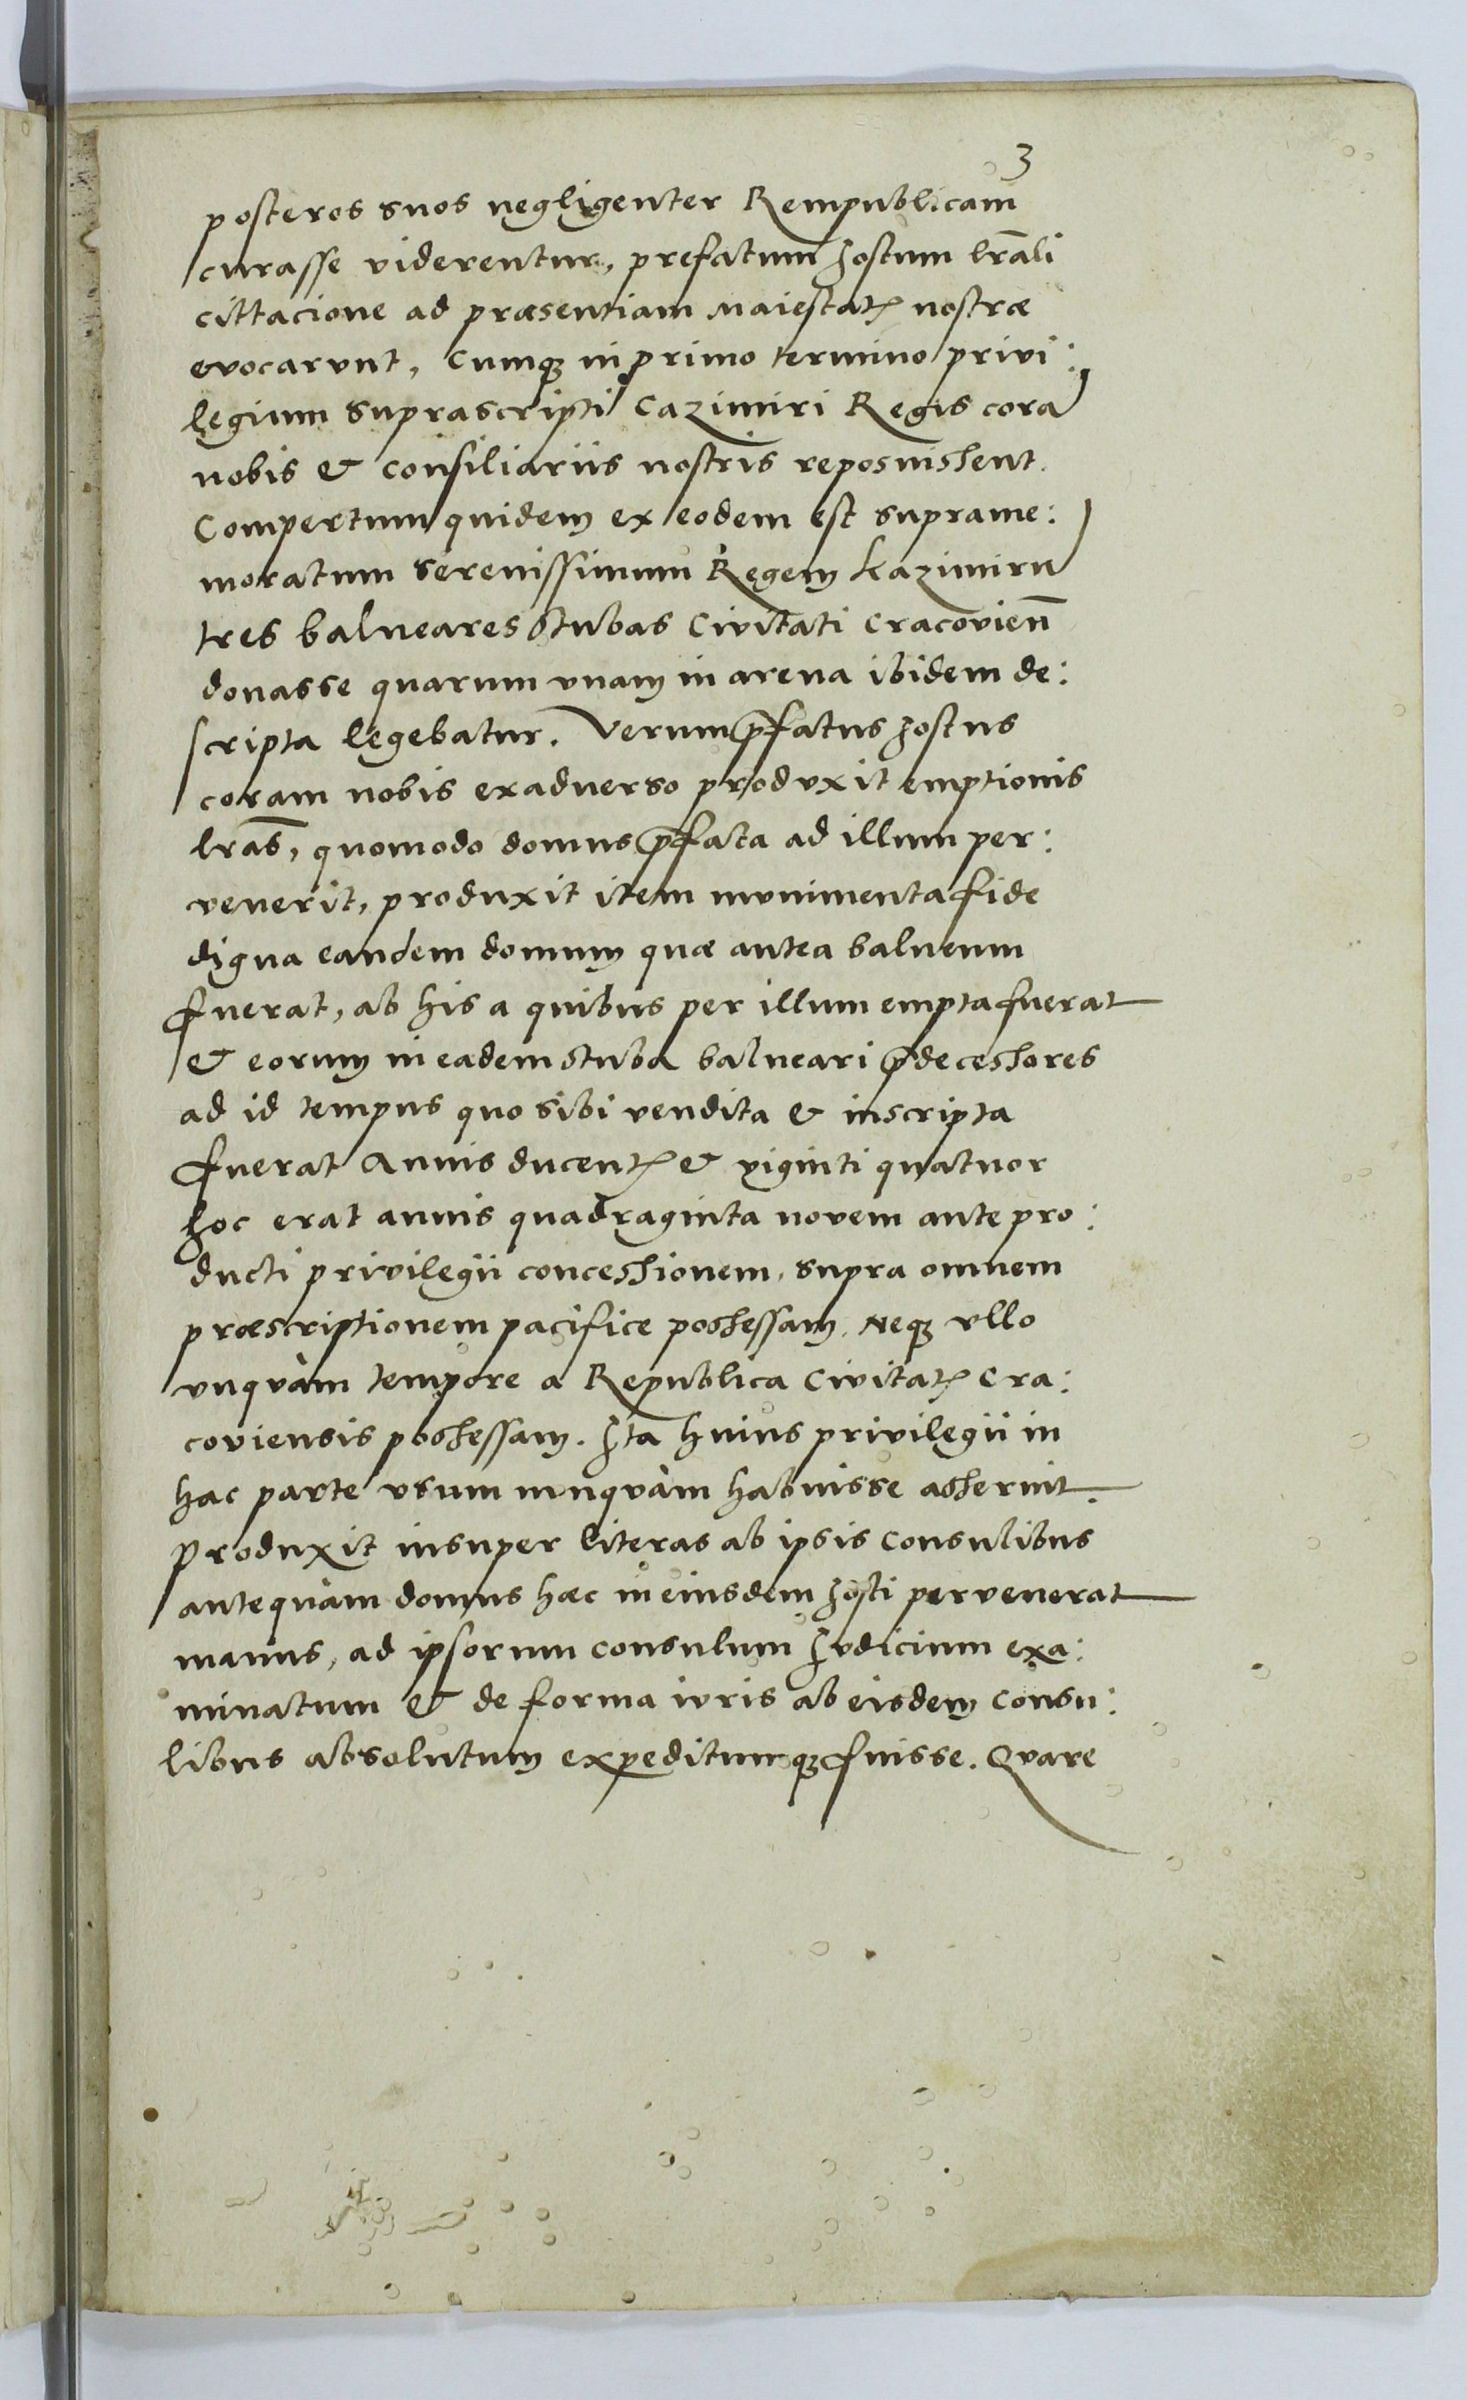 3
posteros suos negligenter Rempublicam
curasse viderentur, prefatum Jostum lr̃ali
cittacione ad præsentiam Maiestatꝭ nostræ
evocarunt, Cumqꝫ in primo termino privi:
legium suprascripti Cazimiri Regis corã
nobis & Consiliariis nostris reposuissent.
Compertum quidem ex eodem est suprame:
moratum Serenissimum Regem Kazimirũ
tres balneares Stubas Civitati Cracovieñ
donasse quarum unam in arena ibidem de:
scripta legebatur. Verum p̃fatus Jostus
coram nobis exadverso produxit emptionis
lr̃as, quomodo domus p̃fata ad illum per:
venerit, produxit item munimenta fide
digna eandem domum quæ antea balneum
fuerat, ab his a quibus per illum empta fuerat
& eorum in eadem stuba balneari p̃decessores
ad id tempus quo sibi vendita & inscripta
fuerat Annis ducentꝭ & viginti quatuor
hoc erat annis quadraginta novem ante pro:
ducti privilegii concessionem, supra omnem
præscriptionem pacifice possessam, Neqꝫ ullo
unquàm tempore a Republica Civitatꝭ Cra:
coviensis possessam. Ita huius privilegii in
hac parte usum nunquàm habuisse asseruit.
Produxit insuper literas ab ipsis Consulibus
antequàm domus hæc in eiusdem Josti pervenerat
manus, ad ipsorum Consulum Judicium exa:
minatum & de forma iuris ab eisdem Consu:
libus absolutum expeditumqꝫ fuisse. Quare